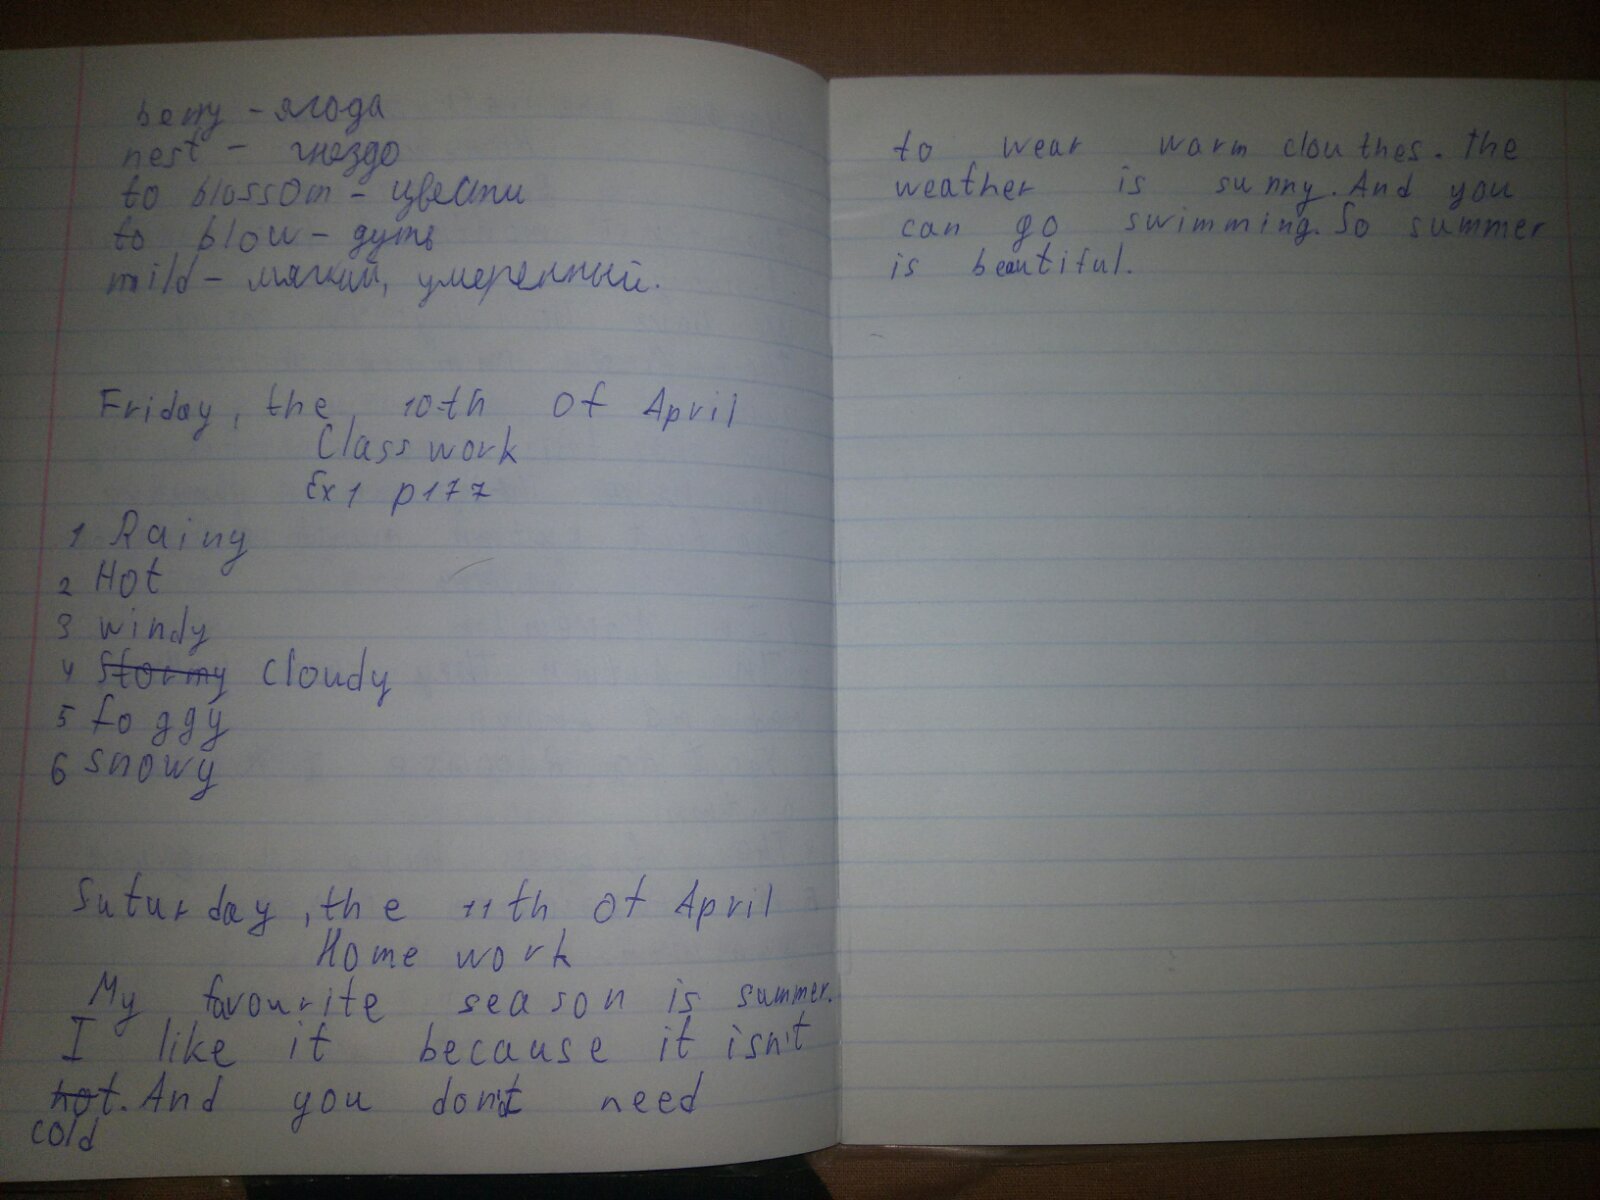 berry - ягода
nest - гнездо
to blossom - цвести
to blow - дуть
mild - мягкий, умеренный.
Friday, the 10th of April
Class work
Ex 1 p 177
1 Rainy
2 Hot
3 windy
4 Stormy Cloudy
5 foggy
6 snowy
Suturday, the 11th of April
Home work
My favourite season is summer.
I like it because it isn't
hot. And you don't need
cold
to wear warm clouthes. The
weather is sunny. And you
can go swimming. So summer
is beautiful.